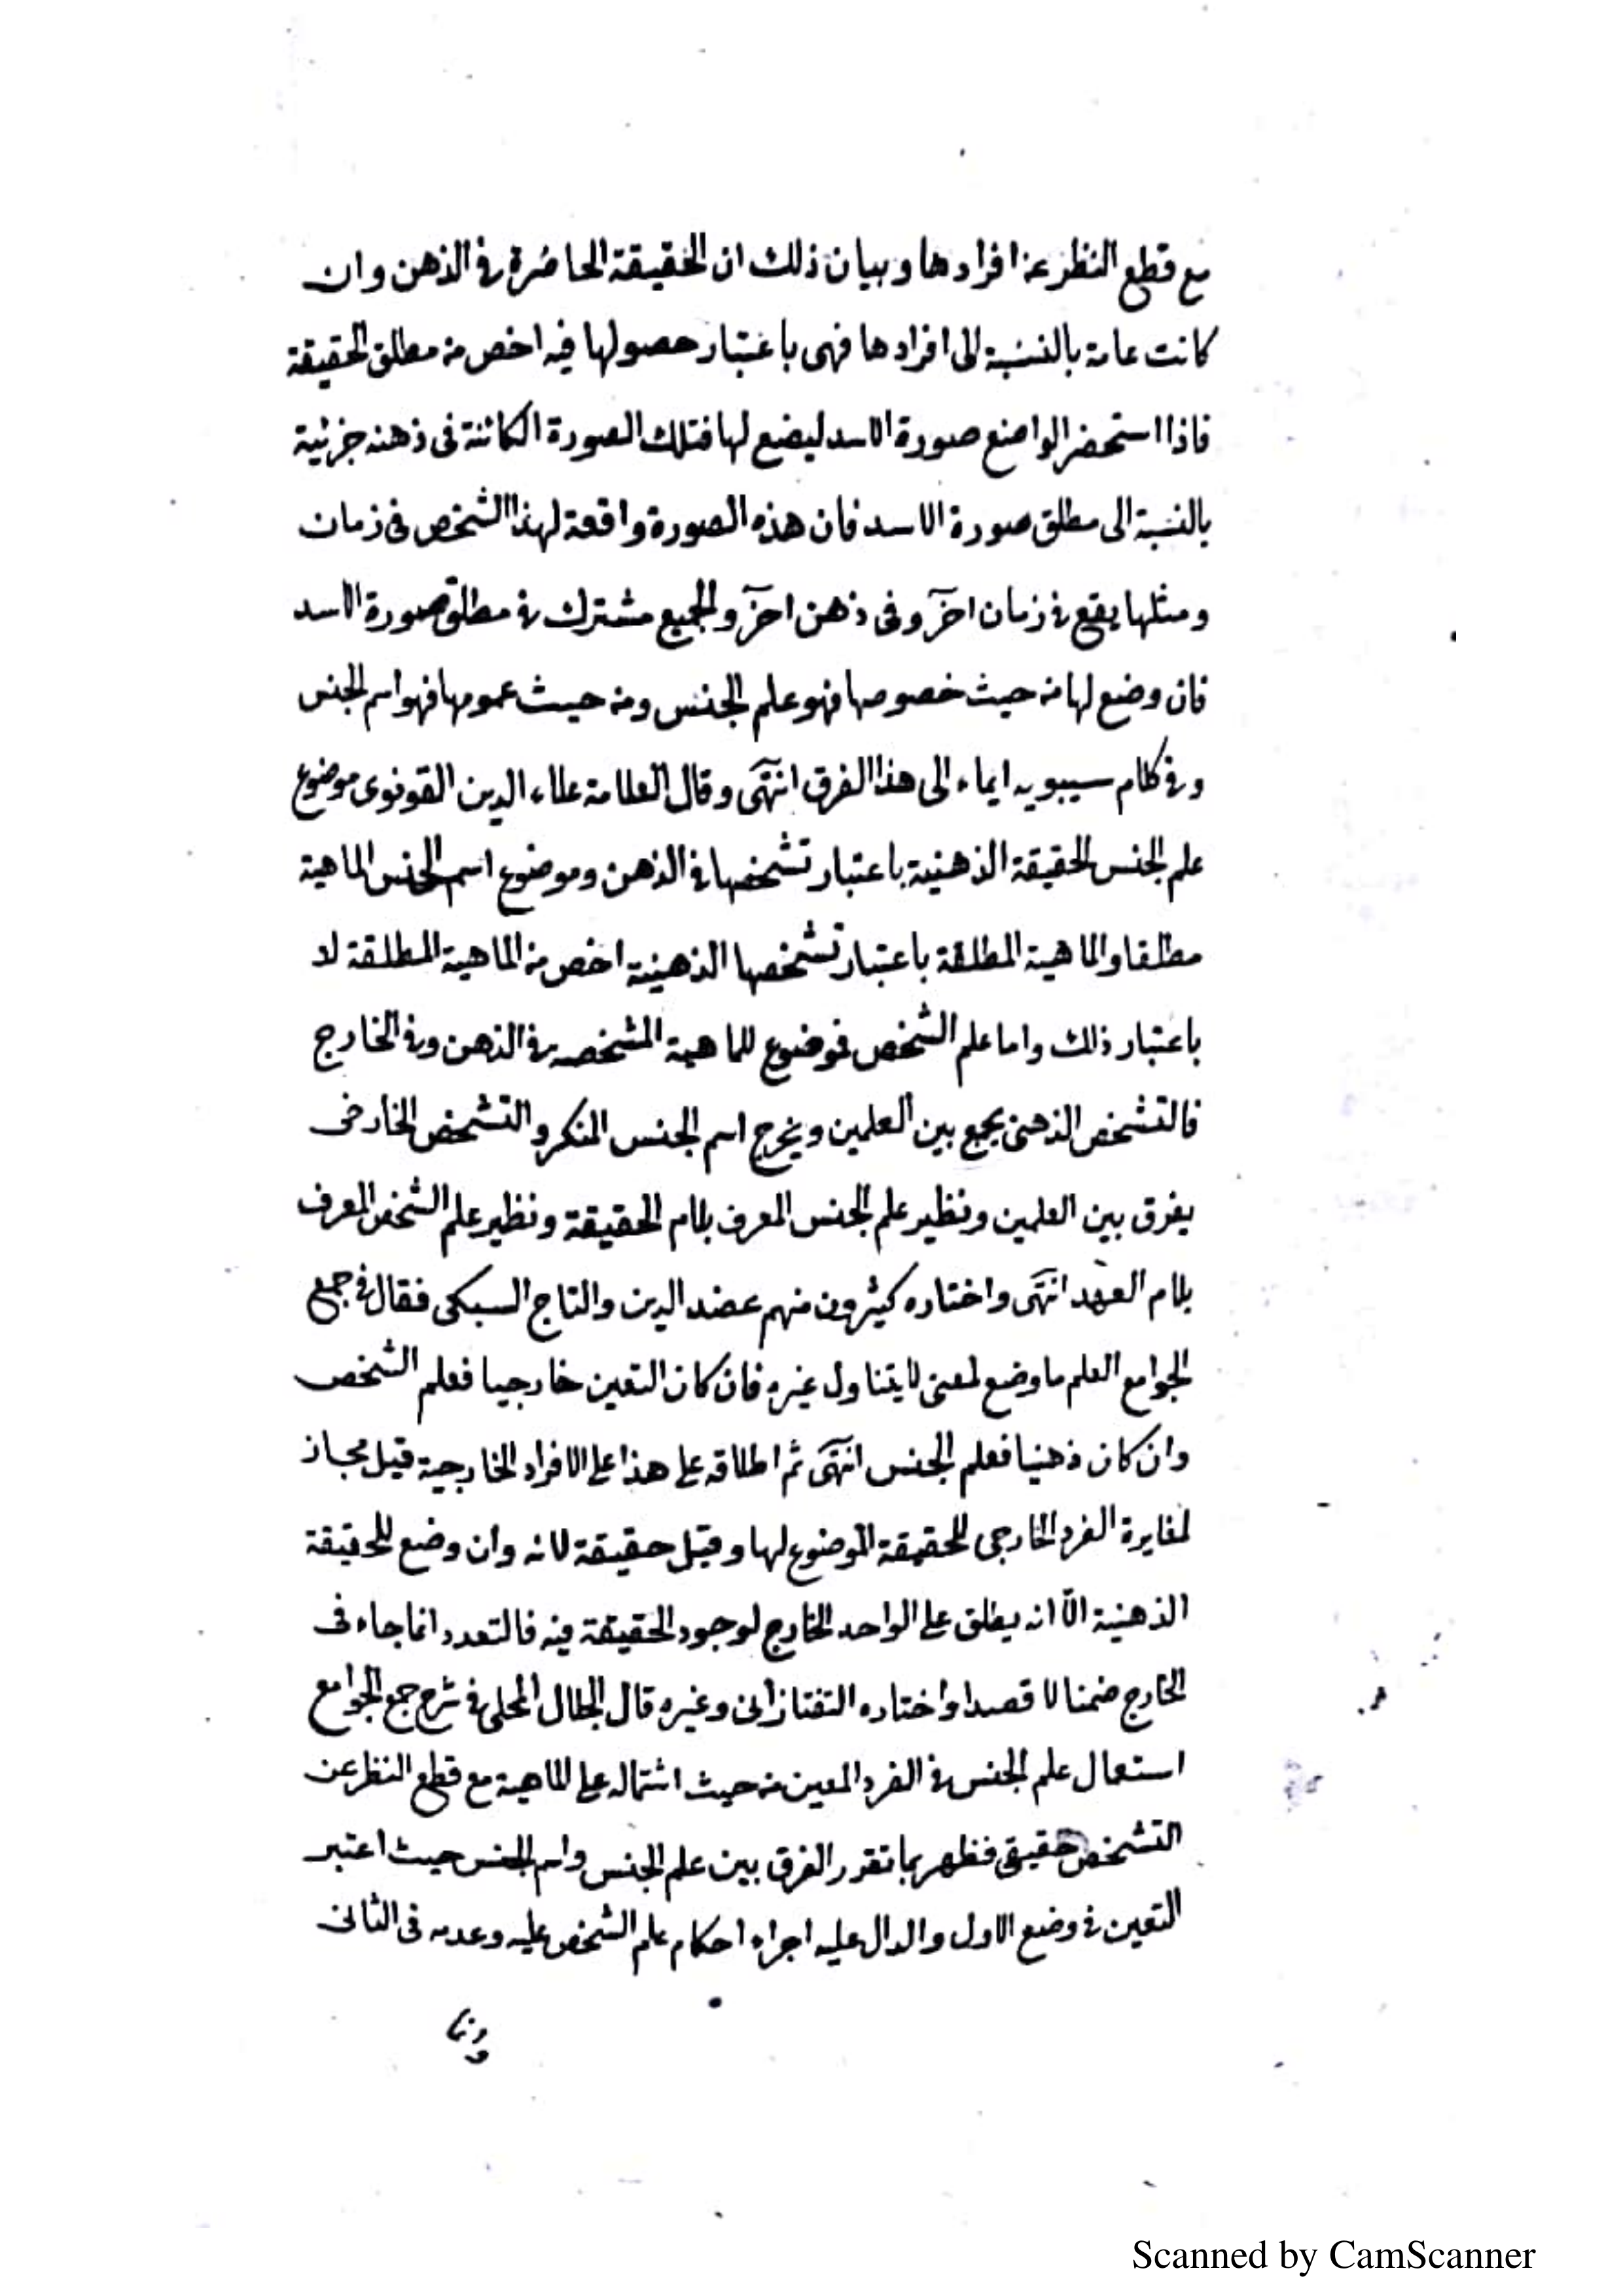 مع قطع النظر عن افرادها وبيان ذلك ان الحقيقة الحاضرة في الذهن وان
كانت عامة بالنسبة الى افرادها فهى باعتبار حصولها فيه اخص من مطلق الحقيقة
فاذا استحضر الواضع صورة الاسد ليضع لها فتلك الصورة الكائنة فى ذهنه جزئية
بالنسبة الى مطلق صورة الاسد فان هذه الصورة واقعة لهذا الشخص فى زمان
ومثلها يقع في زمان آخر وفى ذهن آخر والجميع مشترك في مطلق صورة الاسد
فان وضع لها من حيث خصوصها فهو علم الجنس ومن حيث عمومها فهو اسم الجنس
وفي كلام سيبويه ايماء الى هذا الفرق انتهى وقال العلامة علاء الدين القونوى موضوع
علم الجنس الحقيقة الذهنية باعتبار تشخصها في الذهن وموضوع اسم الجنس الماهية
مطلقا والماهية المطلقة باعتبار تشخصها الذهنية اخص من الماهية المطلقة لا
باعتبار ذلك واما علم الشخص فموضوع للماهية المشخصه في الذهن وفي الخارج
فالتشخص الذهنى يجمع بين العلمين ويخرج اسم الجنس المنكر والتشخص الخارجى
يفرق بين العلمين ونظير علم الجنس المعرف بلام الحقيقة ونظير علم الشخص المعرف
بلام العهد انتهى واختاره كثيرون منهم عضد الدين والتاج السبكى فقال في جمع
الجوامع العلم ما وضع لمعنى لا يتناول غيره فان كان التعين خارجيا فعلم الشخص
وان كان ذهنيا فعلم الجنس انتهى ثم اطلاقه على هذا على الافراد الخارجية قيل مجاز
لمغايرة الفرد الخارجى للحقيقة الموضوع لها وقيل حقيقة لانه وان وضع للحقيقة
الذهنية الّا انه يطلق على الواحد الخارج لوجود الحقيقة فيه فالتعدد انما جاء فى
الخارج ضمنا لا قصدا واختاره التفتازانى وغيره قال الجلال المحلى في شرح جمع الجوامع
استعمال علم الجنس في الفرد المعين من حيث اشتماله على الماهية مع قطع النظر عن
التشخص حقيقى فظهر بما تقرر الفرق بين علم الجنس واسم الجنس حيث اعتبر
التعين في وضع الاول والدال عليه اجراء احكام علم الشخص عليه وعدمه فى الثانى
وانما
Scanned by CamScanner